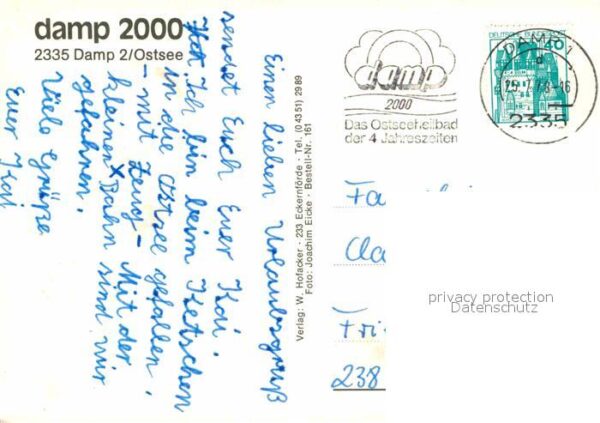 damp 2000
2335 Damp 2/Ostsee
Einen lieben Urlaubsgruß
sendet Euch Euer Kai.
Ich bin beim Ketschen
in die Ostsee gefallen.
– mit Zeug – Mit der
kleinen Bahn sind wir
gefahren.
Viele Grüße
Euer Kai
Verlag: W. Hofacker · 233 Eckernförde · Tel. (0 43 51) 29 89
Foto: Joachim Eicke · Bestell-Nr. 161
damp
2000
Das Ostseeheilbad
der 4 Jahreszeiten
DEUTSCHE BUNDESPOST
40
DAMP 1
d
25.7.78-16
2335
Fa
Cla
Fri
238
privacy protection
Datenschutz